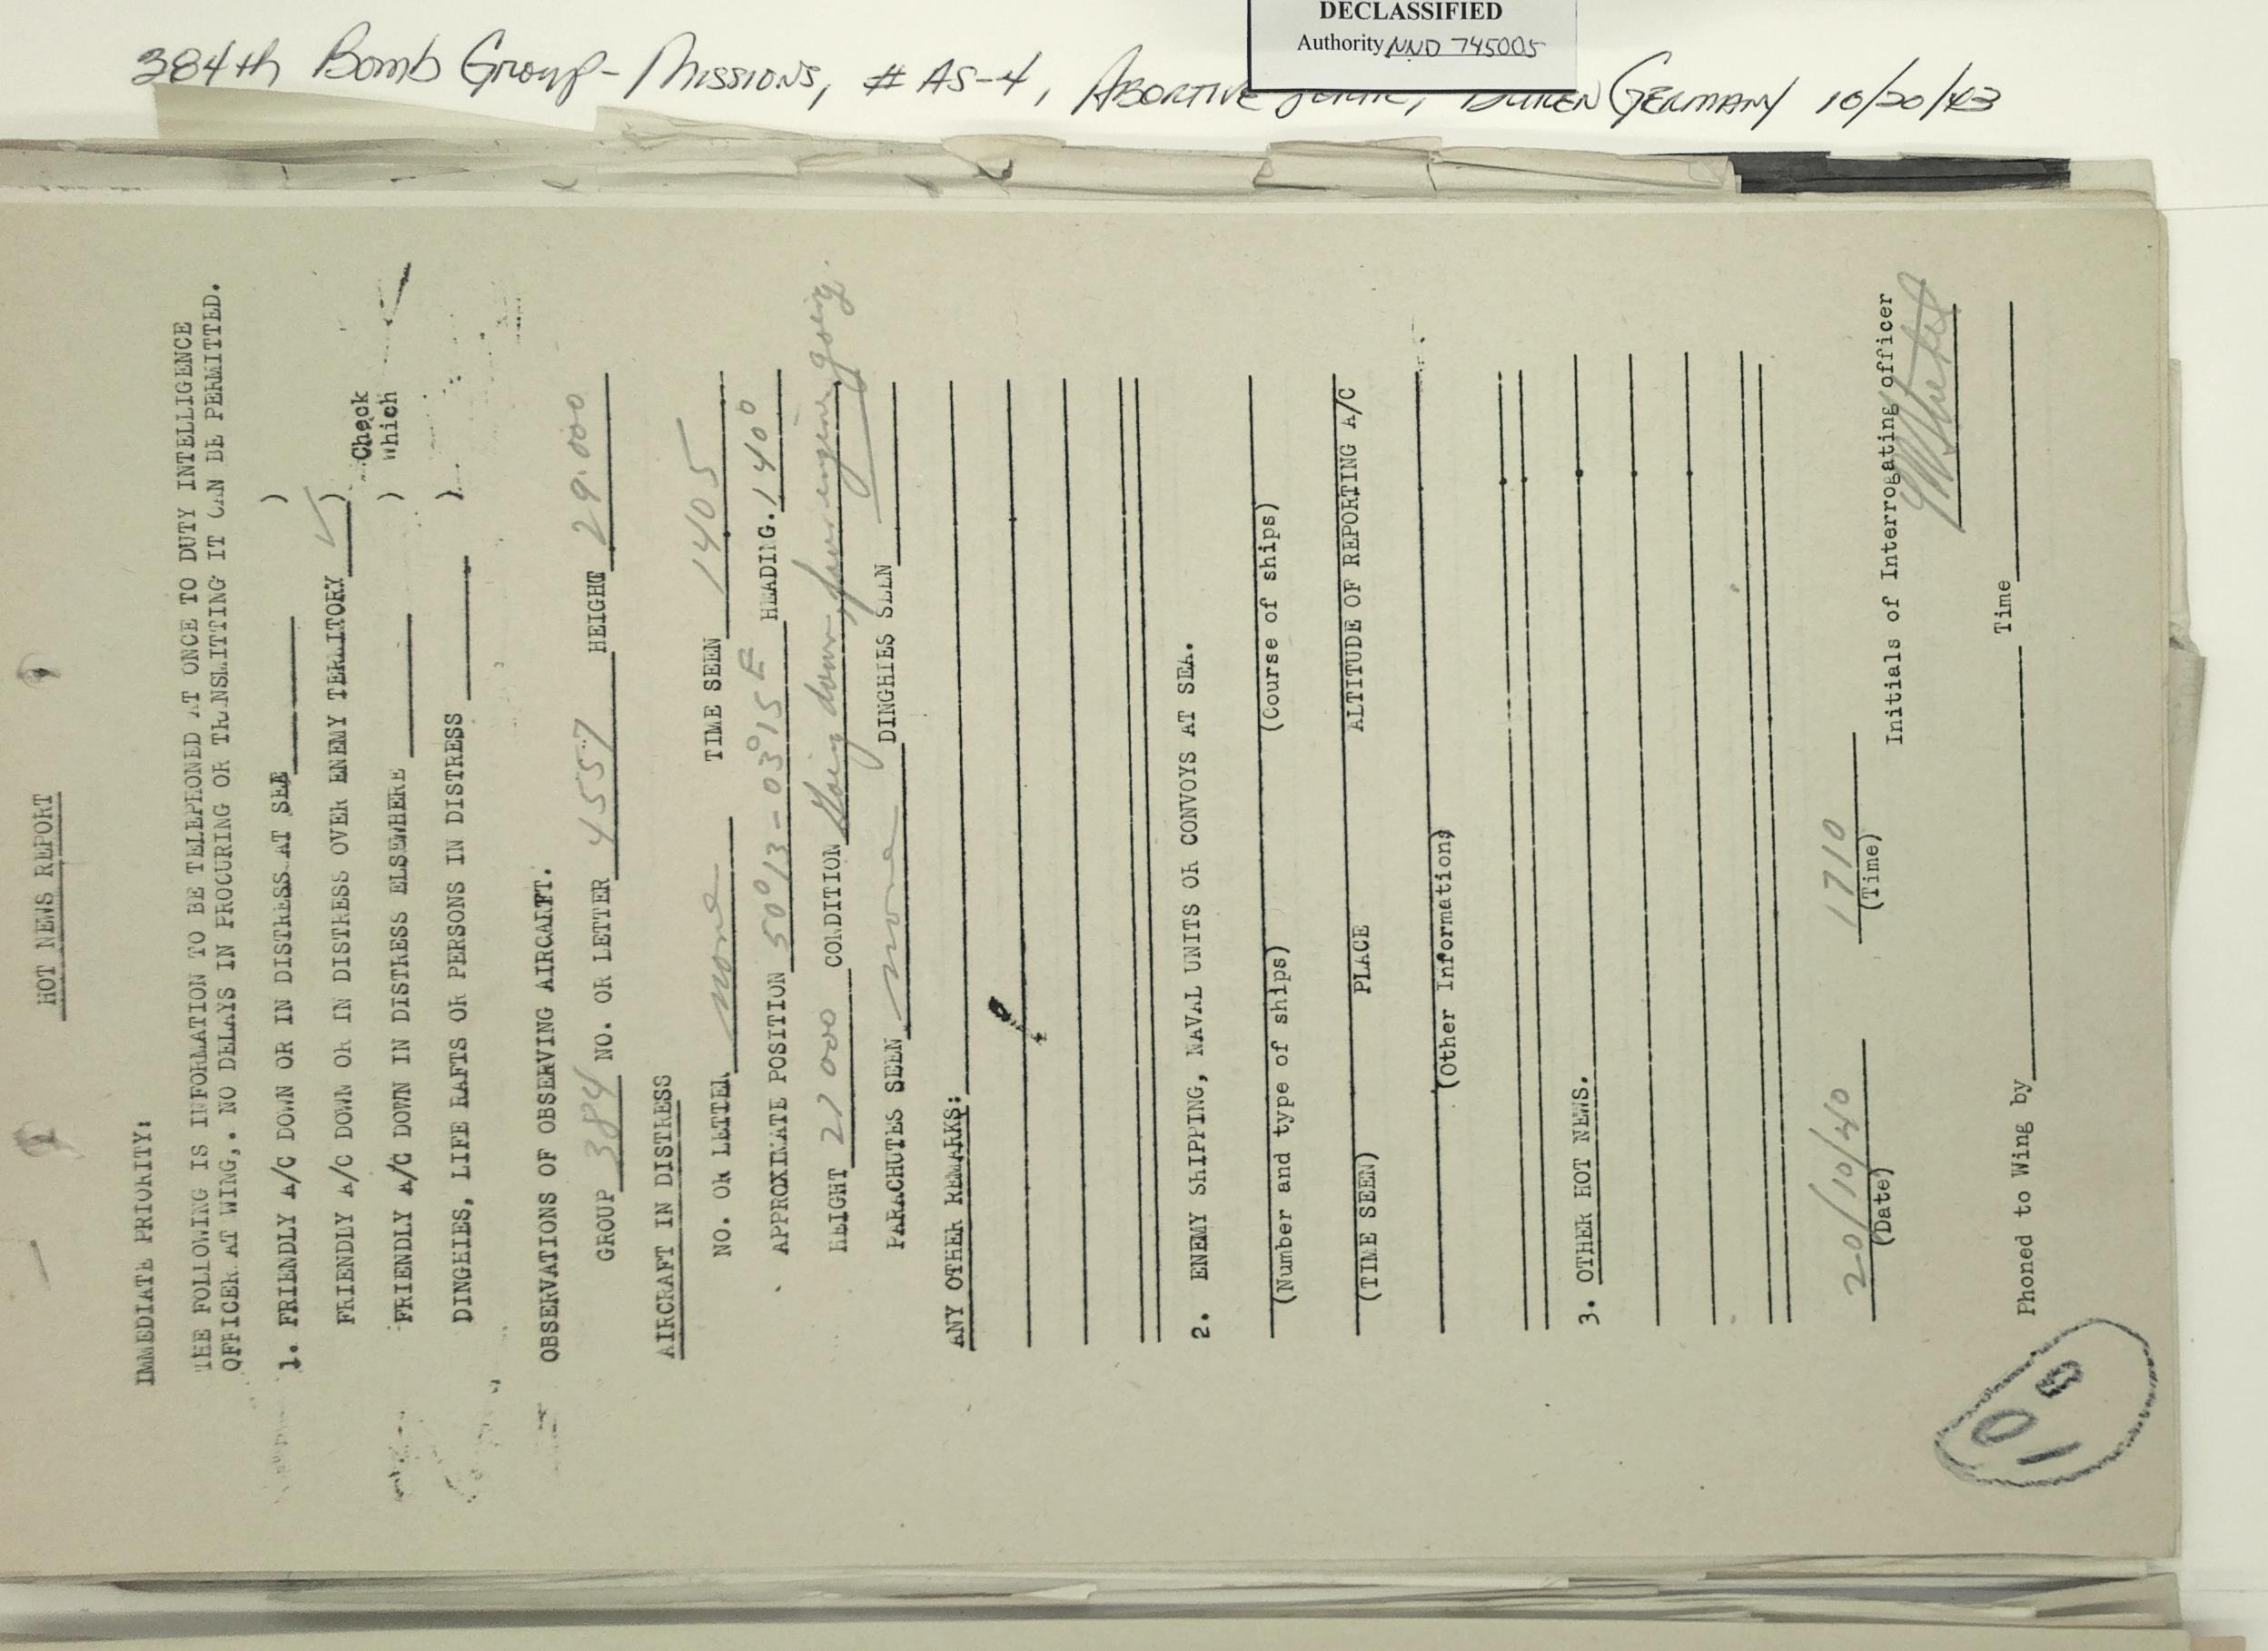 DECLASSIFIED
Authority NND 745005
384th Bomb Group - Missions, # AS-4, Abortive Germany 10/20/43
HOT NEWS REPORT
IMMEDIATE PRIORITY:
THE FOLLOWING IS INFORMATION TO BE TELEPHONED AT ONCE TO DUTY INTELLIGENCE
OFFICER AT WING,. NO DELAYS IN PROCURING OR TRANSLITTING IT CAN BE PERMITTED.
1. FRIENDLY A/C DOWN OR IN DISTRESS AT SEA )
FRIENDLY A/C DOWN OR IN DISTRESS OVER ENEMY TERRITORY ✓ )
Check
FRIENDLY A/C DOWN IN DISTRESS ELSEWHERE ) Which
DINGHIES, LIFE RAFTS OR PERSONS IN DISTRESS )
OBSERVATIONS OF OBSERVING AIRCARFT.
GROUP 384 NO. OR LETTER 4557 HEIGHT 29.000
AIRCRAFT IN DISTRESS
NO. OR LETTER none TIME SEEN 1405
APPROXIMATE POSITION 50°13-03°15E HEADING. 140°
HEIGHT 21000 CONDITION Going down, four engines going.
PARACHUTES SEEN none DINGHIES SEEN
ANY OTHER REMARKS:
2. ENEMY SHIPPING, NAVAL UNITS OR CONVOYS AT SEA.
(Number and type of ships) (Course of ships)
(TIME SEEN) PLACE ALTITUDE OF REPORTING A/C
(Other Information)
3. OTHER HOT NEWS.
20/10/40 1710
(Date) (Time) Initials of Interrogating officer
Phoned to Wing by Time
10